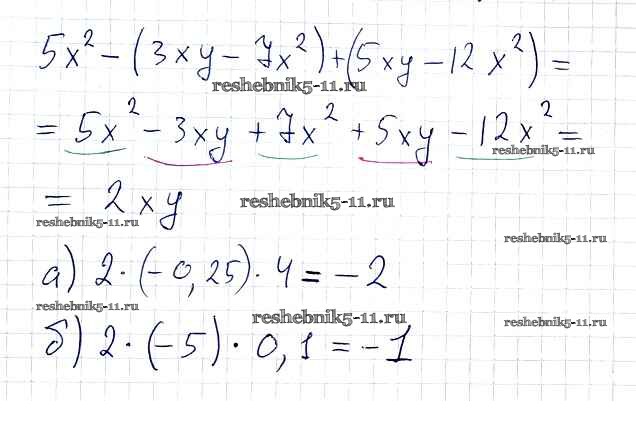 5x² - (3xy - 7x²) + (5xy - 12x²) =
reshebnik5-11.ru
= 5x² - 3xy + 7x² + 5xy - 12x² =
reshebnik5-11.ru
= 2xy
reshebnik5-11.ru
reshebnik5-11.ru
reshebnik5-11.ru
а) 2 · (-0,25) · 4 = -2
reshebnik5-11.ru
reshebnik5-11.ru
reshebnik5-11.ru
б) 2 · (-5) · 0,1 = -1